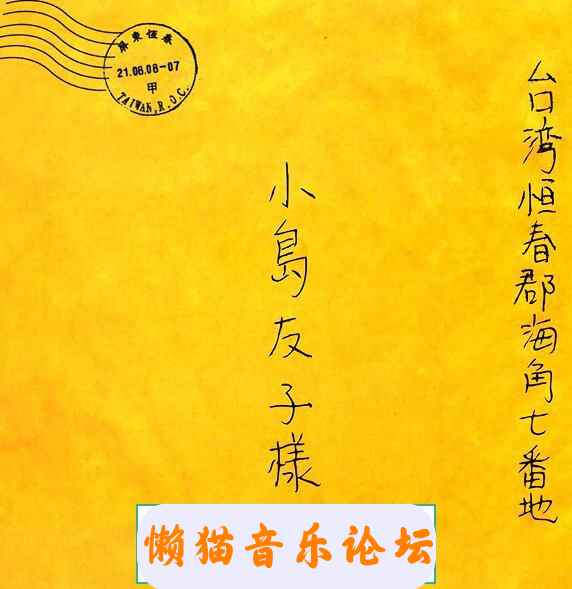 屏東恆春
21.08.08-07
甲
TAIWAN,R.O.C.
台湾恒春郡海角七番地
小島友子様
懒猫音乐论坛